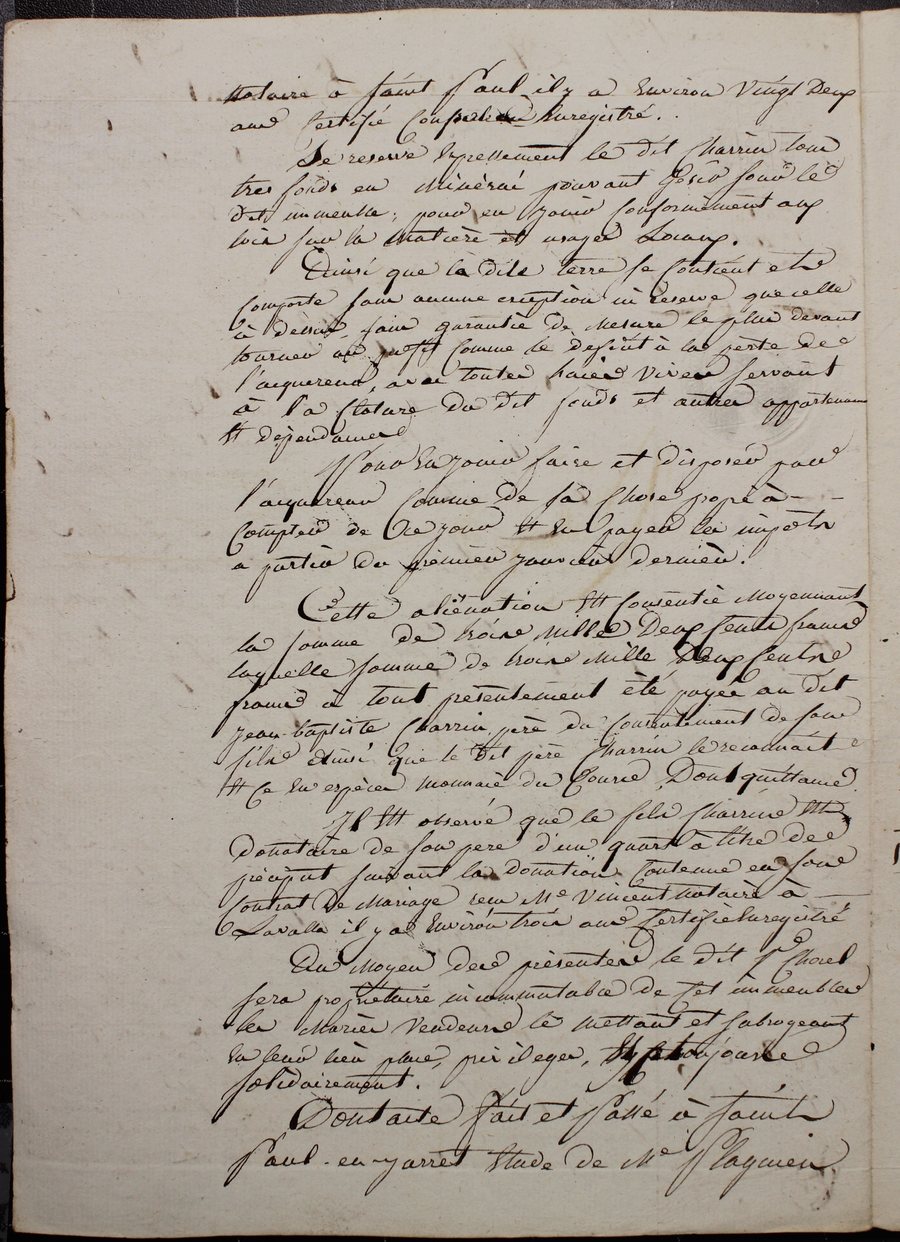 Notaire à Saint Paul il y a Environ Vingt Deux
ans Certifié Controlé Enregistré..
Se reserve Expressement le dit Charrin tous
tres fonds en Minérai pouvant Gésir sous le
dit immeuble, pour en jouir Conformément aux
lois sur la Matière et usages Locaux.
Ainsi que la dite terre se Contient et se
Comporte sans aucune exeption ni reserve que celle
à dessus, sans garantie de Mesure le plus devant
tourner au profit Comme le deficit à la perte de
l'acquereur, avec toutes haies Vives servant
à la Cloture du dit fonds et autres appartenances
Et dependances
Pour En jouir faire et disposer par
l'acquereur Comme de sa Chose propre à
Compter de Ce jour Et En payer les impots
a partir du premier janvier dernier.
Cette aliénation Est Consentie Moyennant
la somme de trois Mille Deux Cents francs
laquelle somme de trois Mille Deux Cents
francs à tout présentement été payée au dit
jean-baptiste Charrin père du Consentement de son
fils ainsi que le dit père Charrin le reconnait
Et Ce En espèces monnaie du Cours, Dont quittance.
Il Est observé que le fils Charrin Est
Donataire de son pere d'un quart à titre de
préciput suivant la donation Contenue en son
Contrat De Mariage reçu Me Vincent Notaire à
Lavalla il y a Environ trois ans Certifié Enregistré
Au Moyen des présentes le dit Sr Chorel
sera propriétaire incommutable de Cet immeuble
les Mariés Vendeurs le Mettant et subrogeant
En leur lieu place, privileges, Hypotheques
solidairement.
Dont acte Fait et Passé à Saint
Paul-en-jarrêt Etude de Me Plagnieu